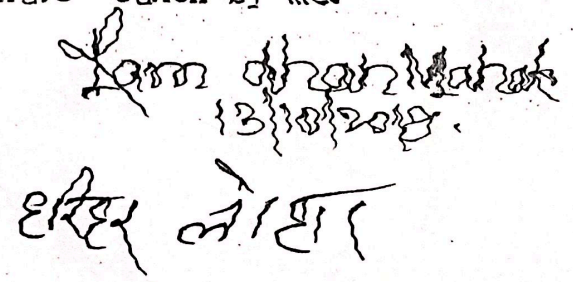 by me.
Ram dhan Mahak
13/10/2018.
हरिहर लोहार